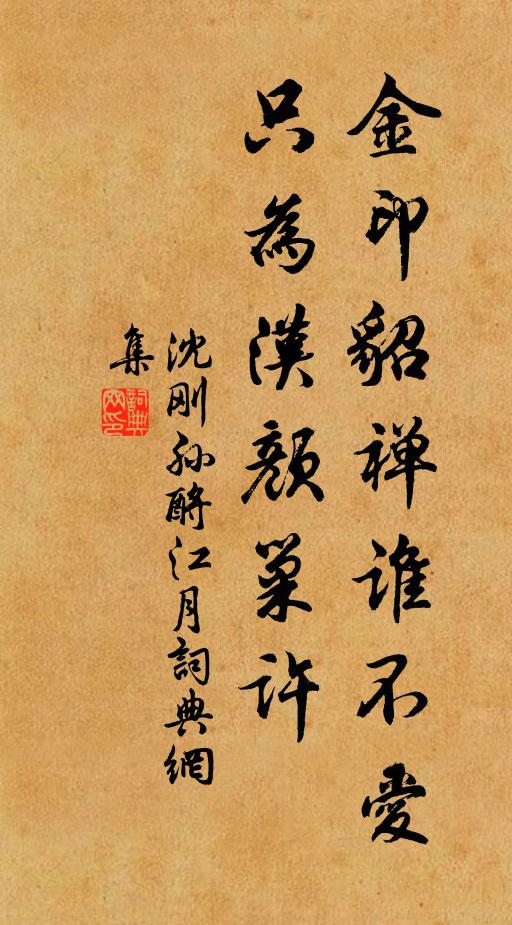 金印貂禅谁不愛
只為漢顏巢许
沈刚孙酹江月詞典網
集
詞典网印